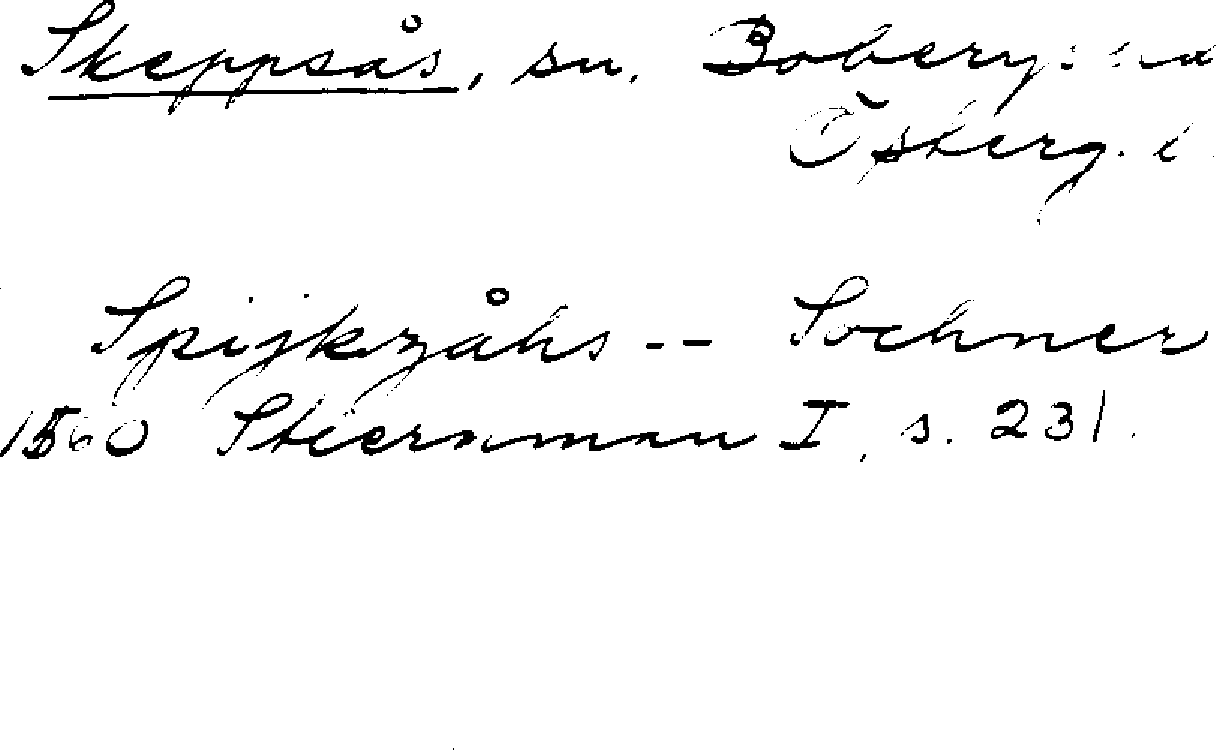 Skeppsås, sn. Bobergs hd
Österg. l.
Spijkzåhs -- Sochner
1560 Stiernman I, s. 231.